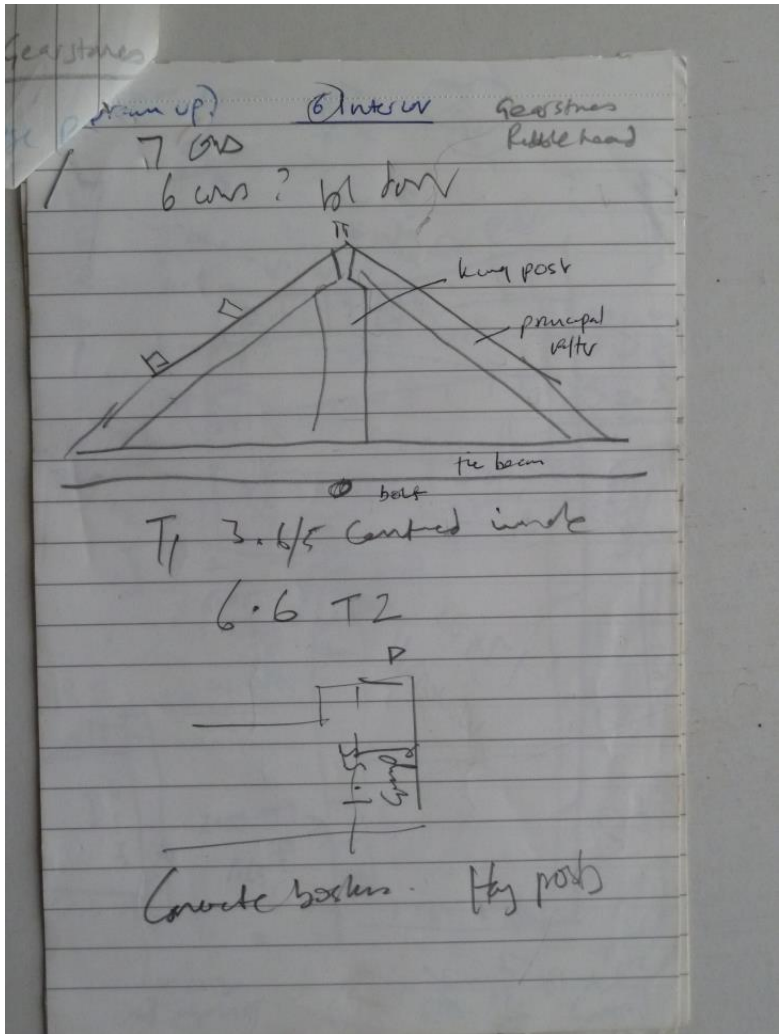 Gearstones
drawn up? 6 Interior Gearstones
Ribblehead
7
6 cows?
king post
principal
rafter
tie beam
bolt
T1 3.6/5 Centred inside
6.6 T2
D
5.1
Concrete boskins. Hay posts